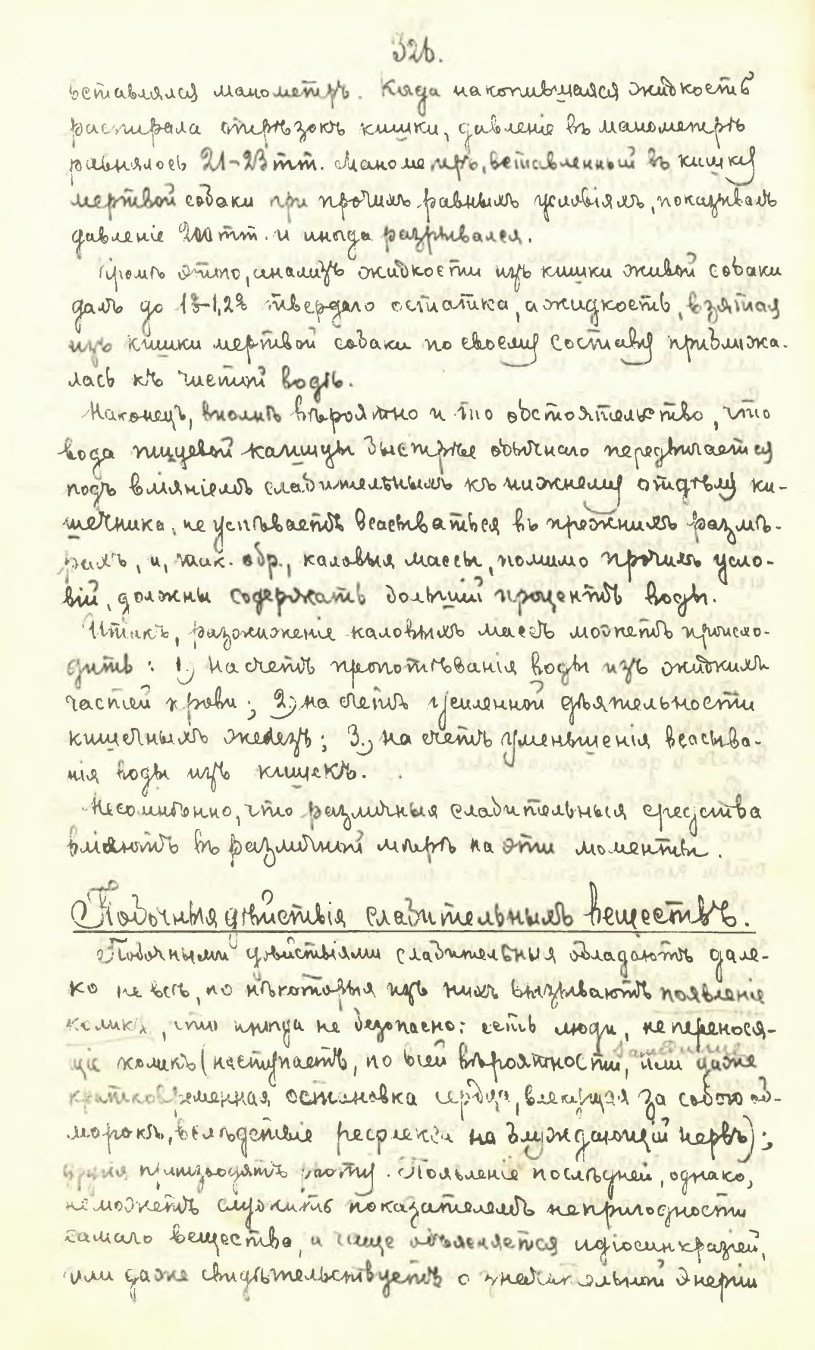 326.
вставлялся манометръ. Когда накопившаяся жидкость
распирала отрѣзокъ кишки, давленіе въ манометрѣ
равнялось 21-23 mm. Манометръ, вставленный въ кишку
мертвой собаки при прочихъ равныхъ условіяхъ, показывалъ
давленіе 200 mm. и иногда разрывался.
Кромѣ этого, анализъ жидкости изъ кишки живой собаки
далъ до 1%-1,2% твердаго остатка, а жидкость, взятая
изъ кишки мертвой собаки по своему составу приближа-
лась къ чистой водѣ.
Наконецъ, вполнѣ вѣроятно и то обстоятельство, что
вода пищевой кашицы быстрѣе обычнаго передвигается
подъ вліяніемъ слабительныхъ къ нижнему отдѣлу ки-
шечника, не успѣваетъ всасываться въ прежнихъ размѣ-
рахъ, и, так. обр., каловыя массы, помимо прочихъ усло-
вій, должны содержать большій процентъ воды.
Итакъ, разжиженіе каловыхъ массъ можетъ происхо-
дить: 1) на счетъ пропотѣванія воды изъ жидкихъ
частей крови; 2) на счетъ усиленной дѣятельности
кишечныхъ железъ; 3) на счетъ уменьшенія всасыва-
нія воды изъ кишекъ.
Несомнѣнно, что различныя слабительныя средства
вліяютъ въ различной мѣрѣ на эти моменты.
Побочныя дѣйствія слабительныхъ веществъ.
Побочными дѣйствіями слабительныя обладаютъ дале-
ко не всѣ, но нѣкоторыя изъ нихъ вызываютъ появленіе
коликъ, что иногда не безопасно: есть люди, не перенося-
щіе коликъ (наступаетъ, по всей вѣроятности, или даже
кратковременная остановка сердца, влекущая за собою об-
морокъ, вслѣдствіе рефлекса на блуждающій нервъ);
другія производятъ рвоту. Появленіе послѣдней, однако,
не можетъ служить показателемъ непригодности
самаго вещества, а чаще объясняется идіосинкразіей,
или даже свидѣтельствуетъ о значительной энергіи